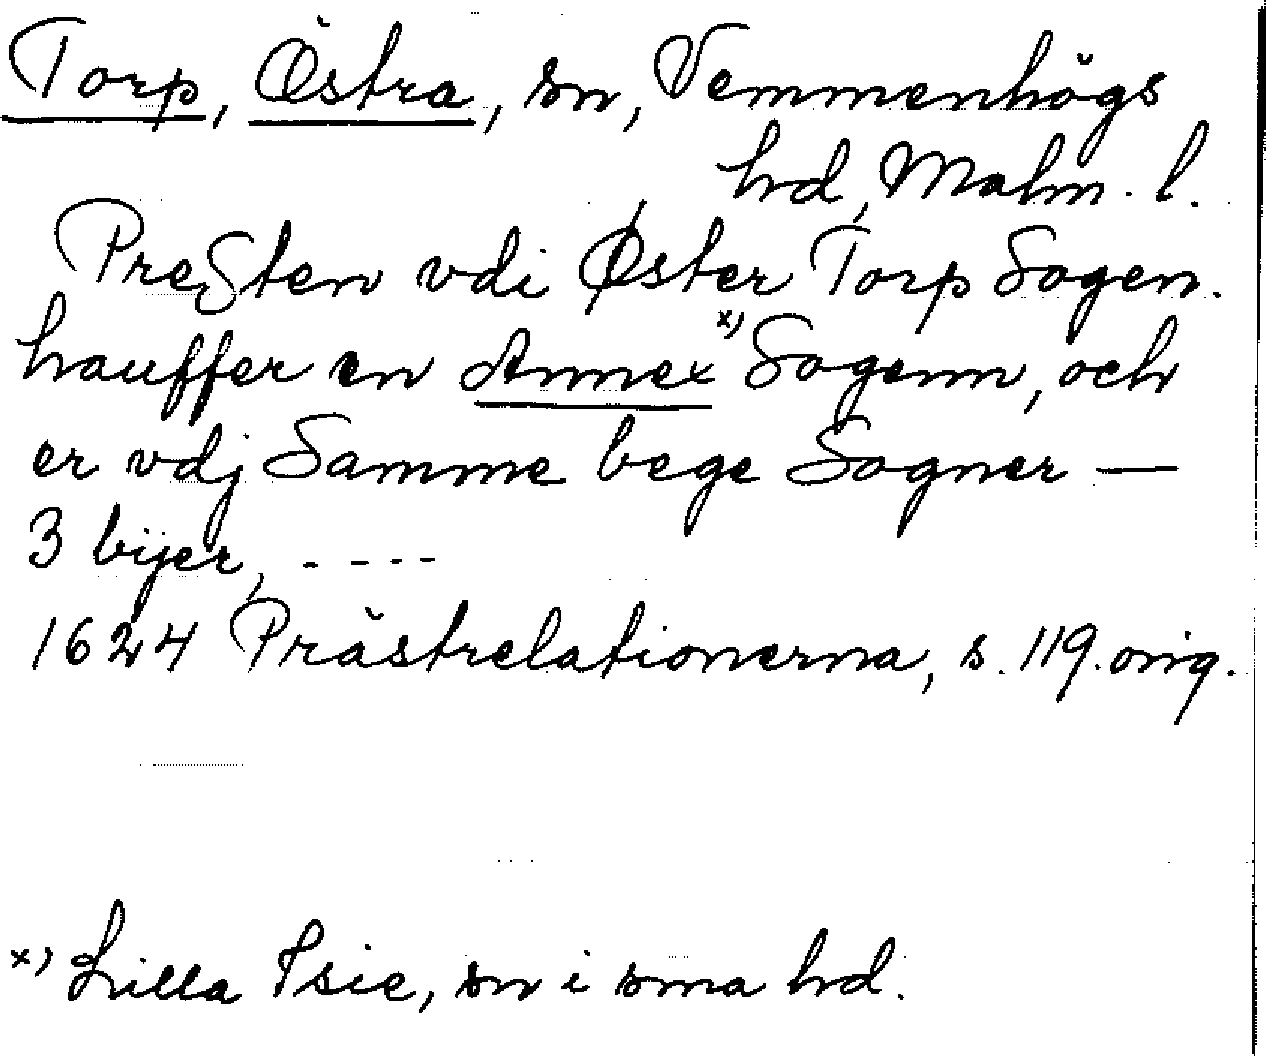 Torp, Östra, sn, Vemmenhögs
hd, Malm. l.
Presten vdi Øster Torp Sogen.
hauffer en Annex x) Sogenn, och
er vdj Samme bege Sogner —
3 bijer, - - - -
1624 Prästrelationerna, s. 119. orig.
x) Lilla Isie, sn i sma hd.